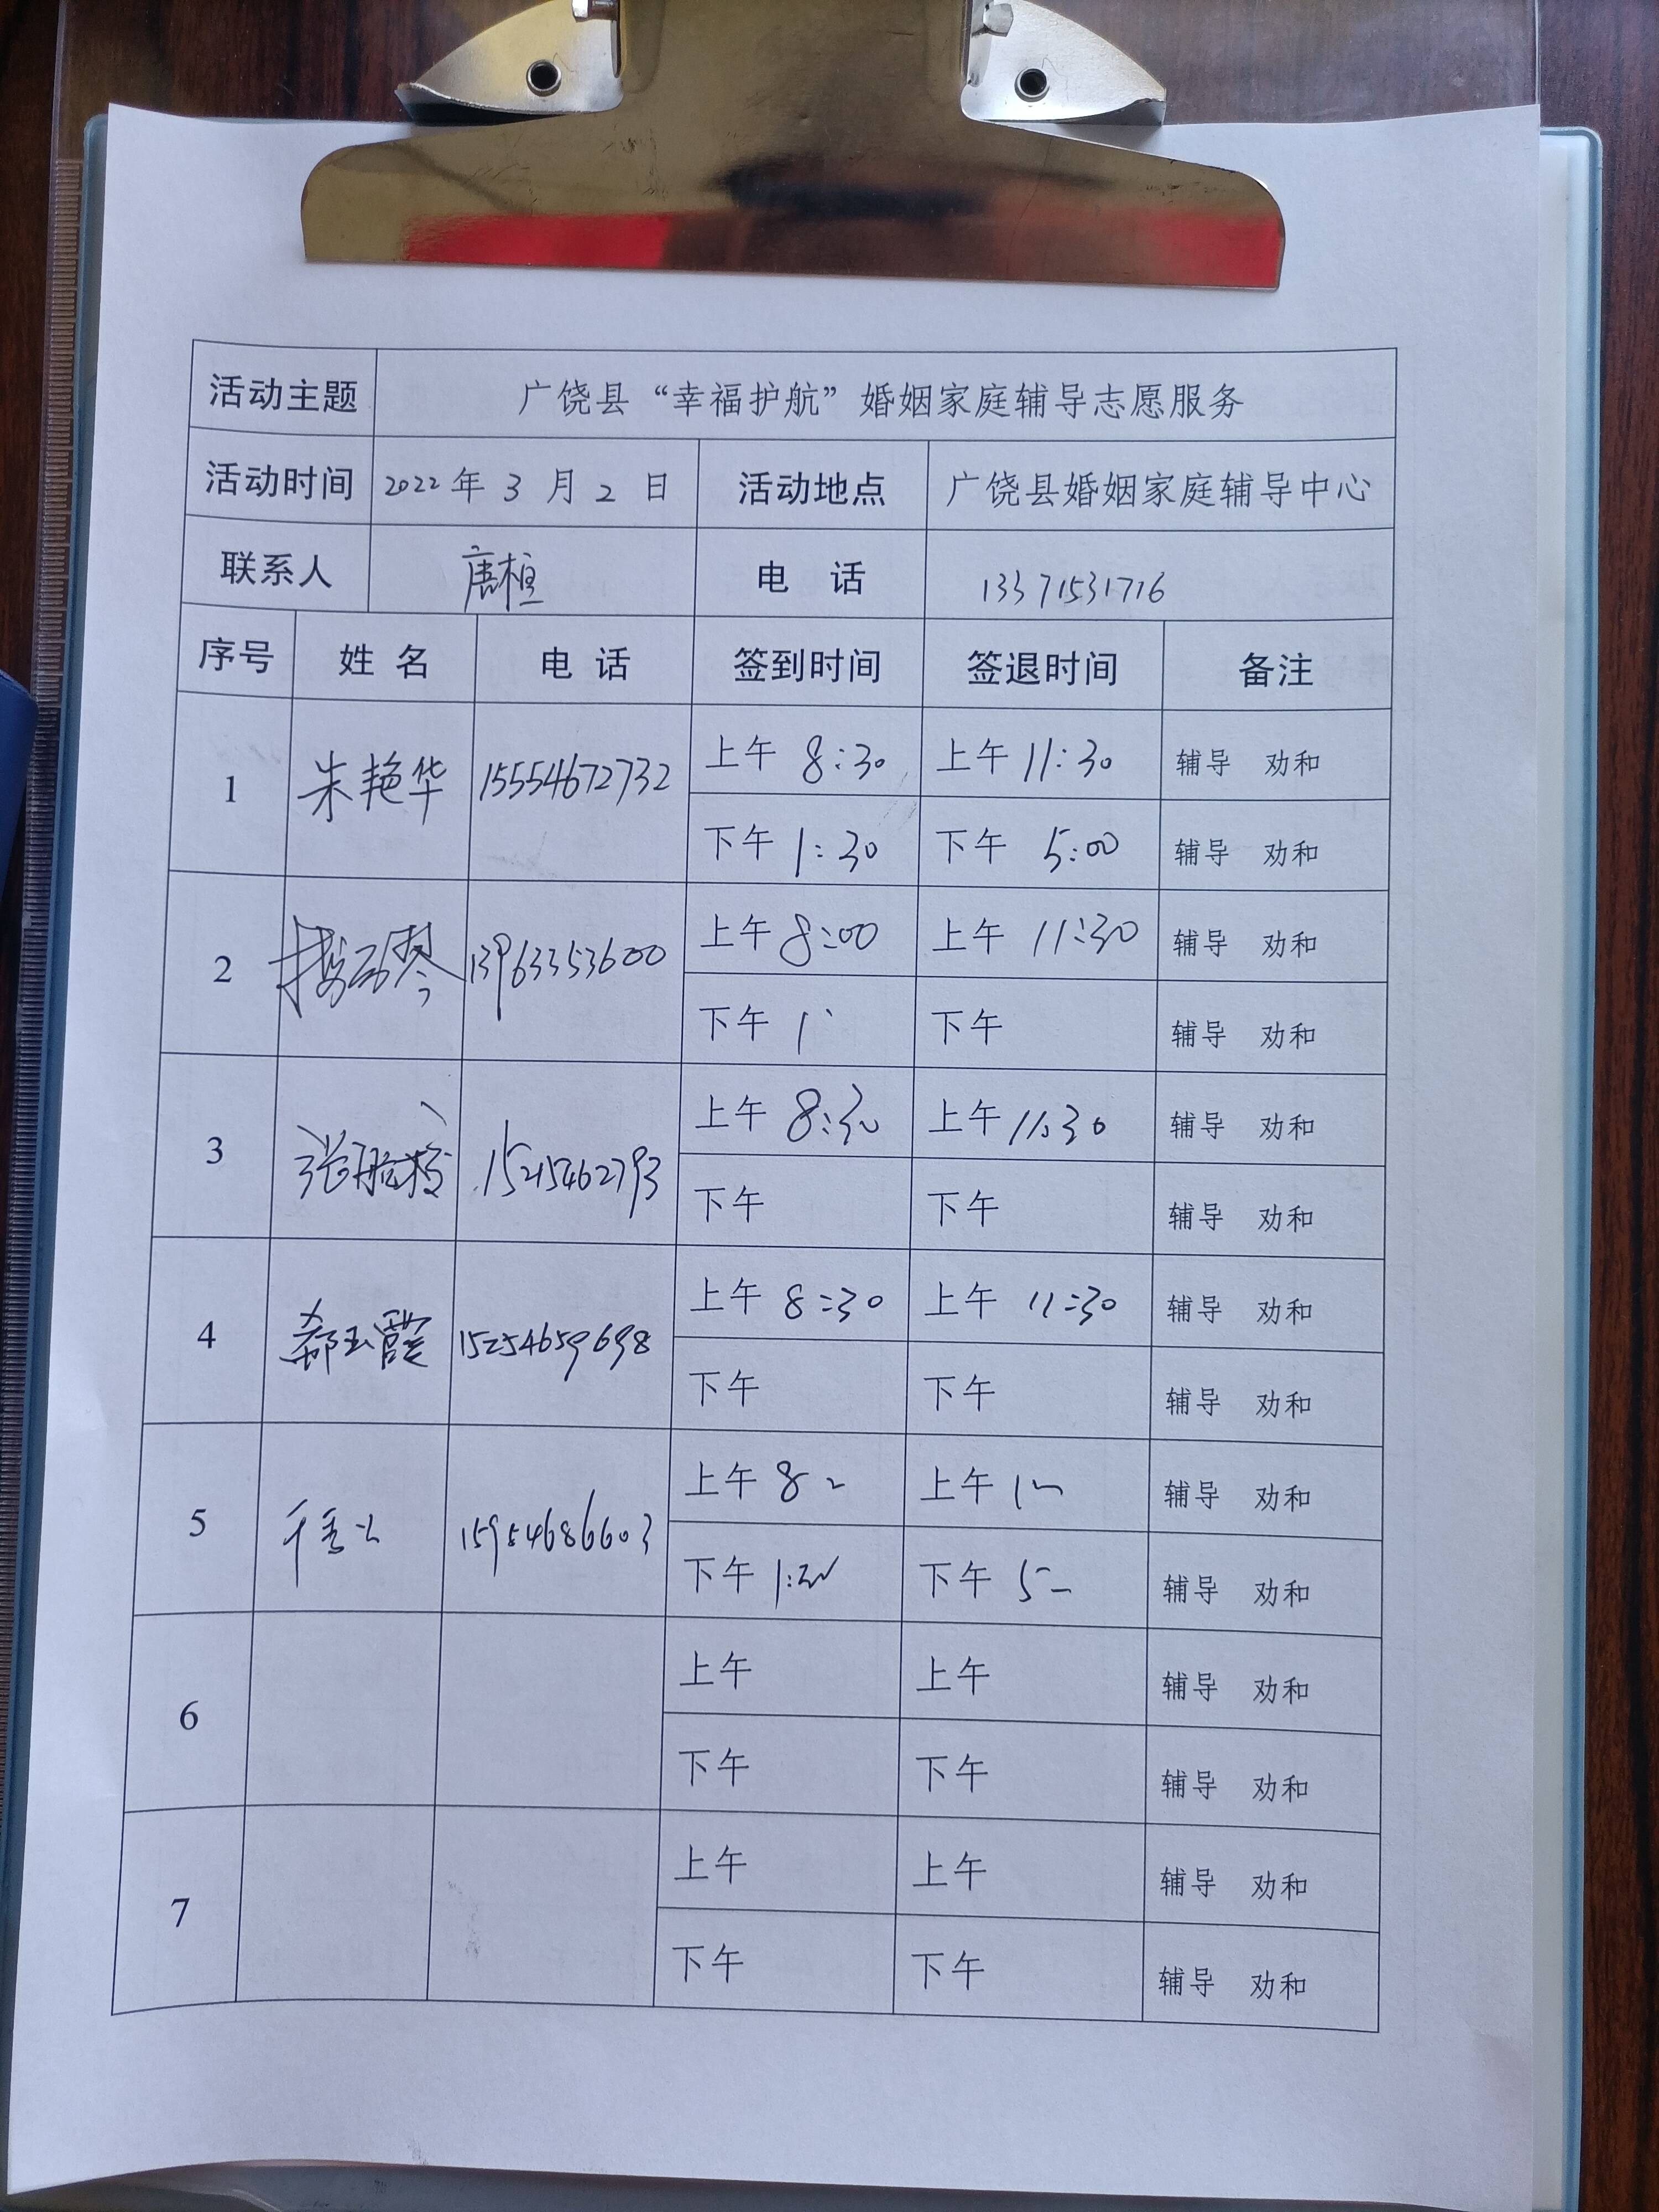 活动主题 广饶县“幸福护航”婚姻家庭辅导志愿服务
活动时间 2022年 3 月 2 日 活动地点 广饶县婚姻家庭辅导中心
联系人 唐桓 电 话 13371531716
序号 姓 名 电 话 签到时间 签退时间 备注
1 朱艳华 15554672732 上午 8:30 上午 11:30 辅导 劝和
下午 1:30 下午 5:00 辅导 劝和
2 13963353600 上午 8:00 上午 11:30 辅导 劝和
下午 1 下午 辅导 劝和
3 15215462793 上午 8:30 上午 11:30 辅导 劝和
下午 下午 辅导 劝和
4 郗玉霞 15254659698 上午 8:30 上午 11:30 辅导 劝和
下午 下午 辅导 劝和
5 15954686603 上午 8 上午 辅导 劝和
下午 1:30 下午 5 辅导 劝和
6 上午 上午 辅导 劝和
下午 下午 辅导 劝和
7 上午 上午 辅导 劝和
下午 下午 辅导 劝和